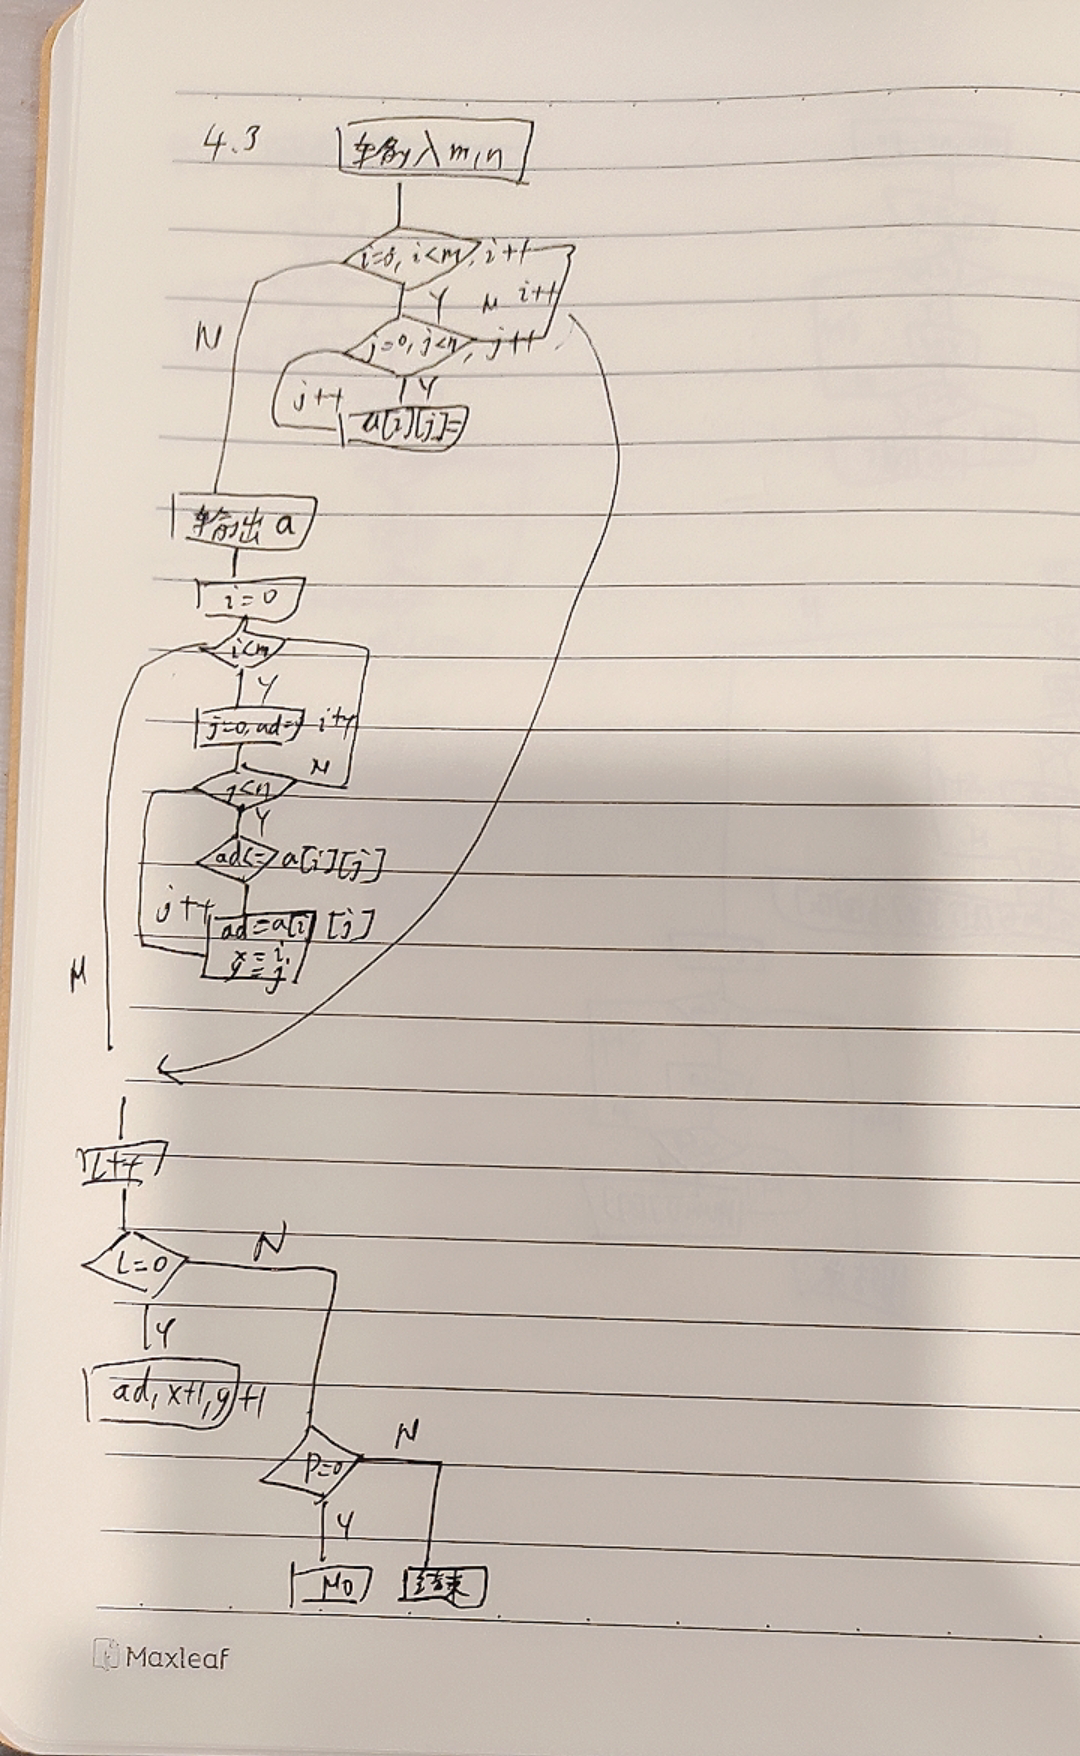 4.3
输入m,n
i=0, i<m, i++
Y N i++
N
j=0, j<n, j++
j++ Y
a[i][j]=
输出a
i=0
i<m
Y
j=0, ad= i++
N
j<n
Y
ad<= a[i][j]
j++
ad=a[i][j]
x=i,
y=j
N
i++
N
i=0
Y
ad, x+1, y+1
N
P=0
Y
NO 结束
Maxleaf